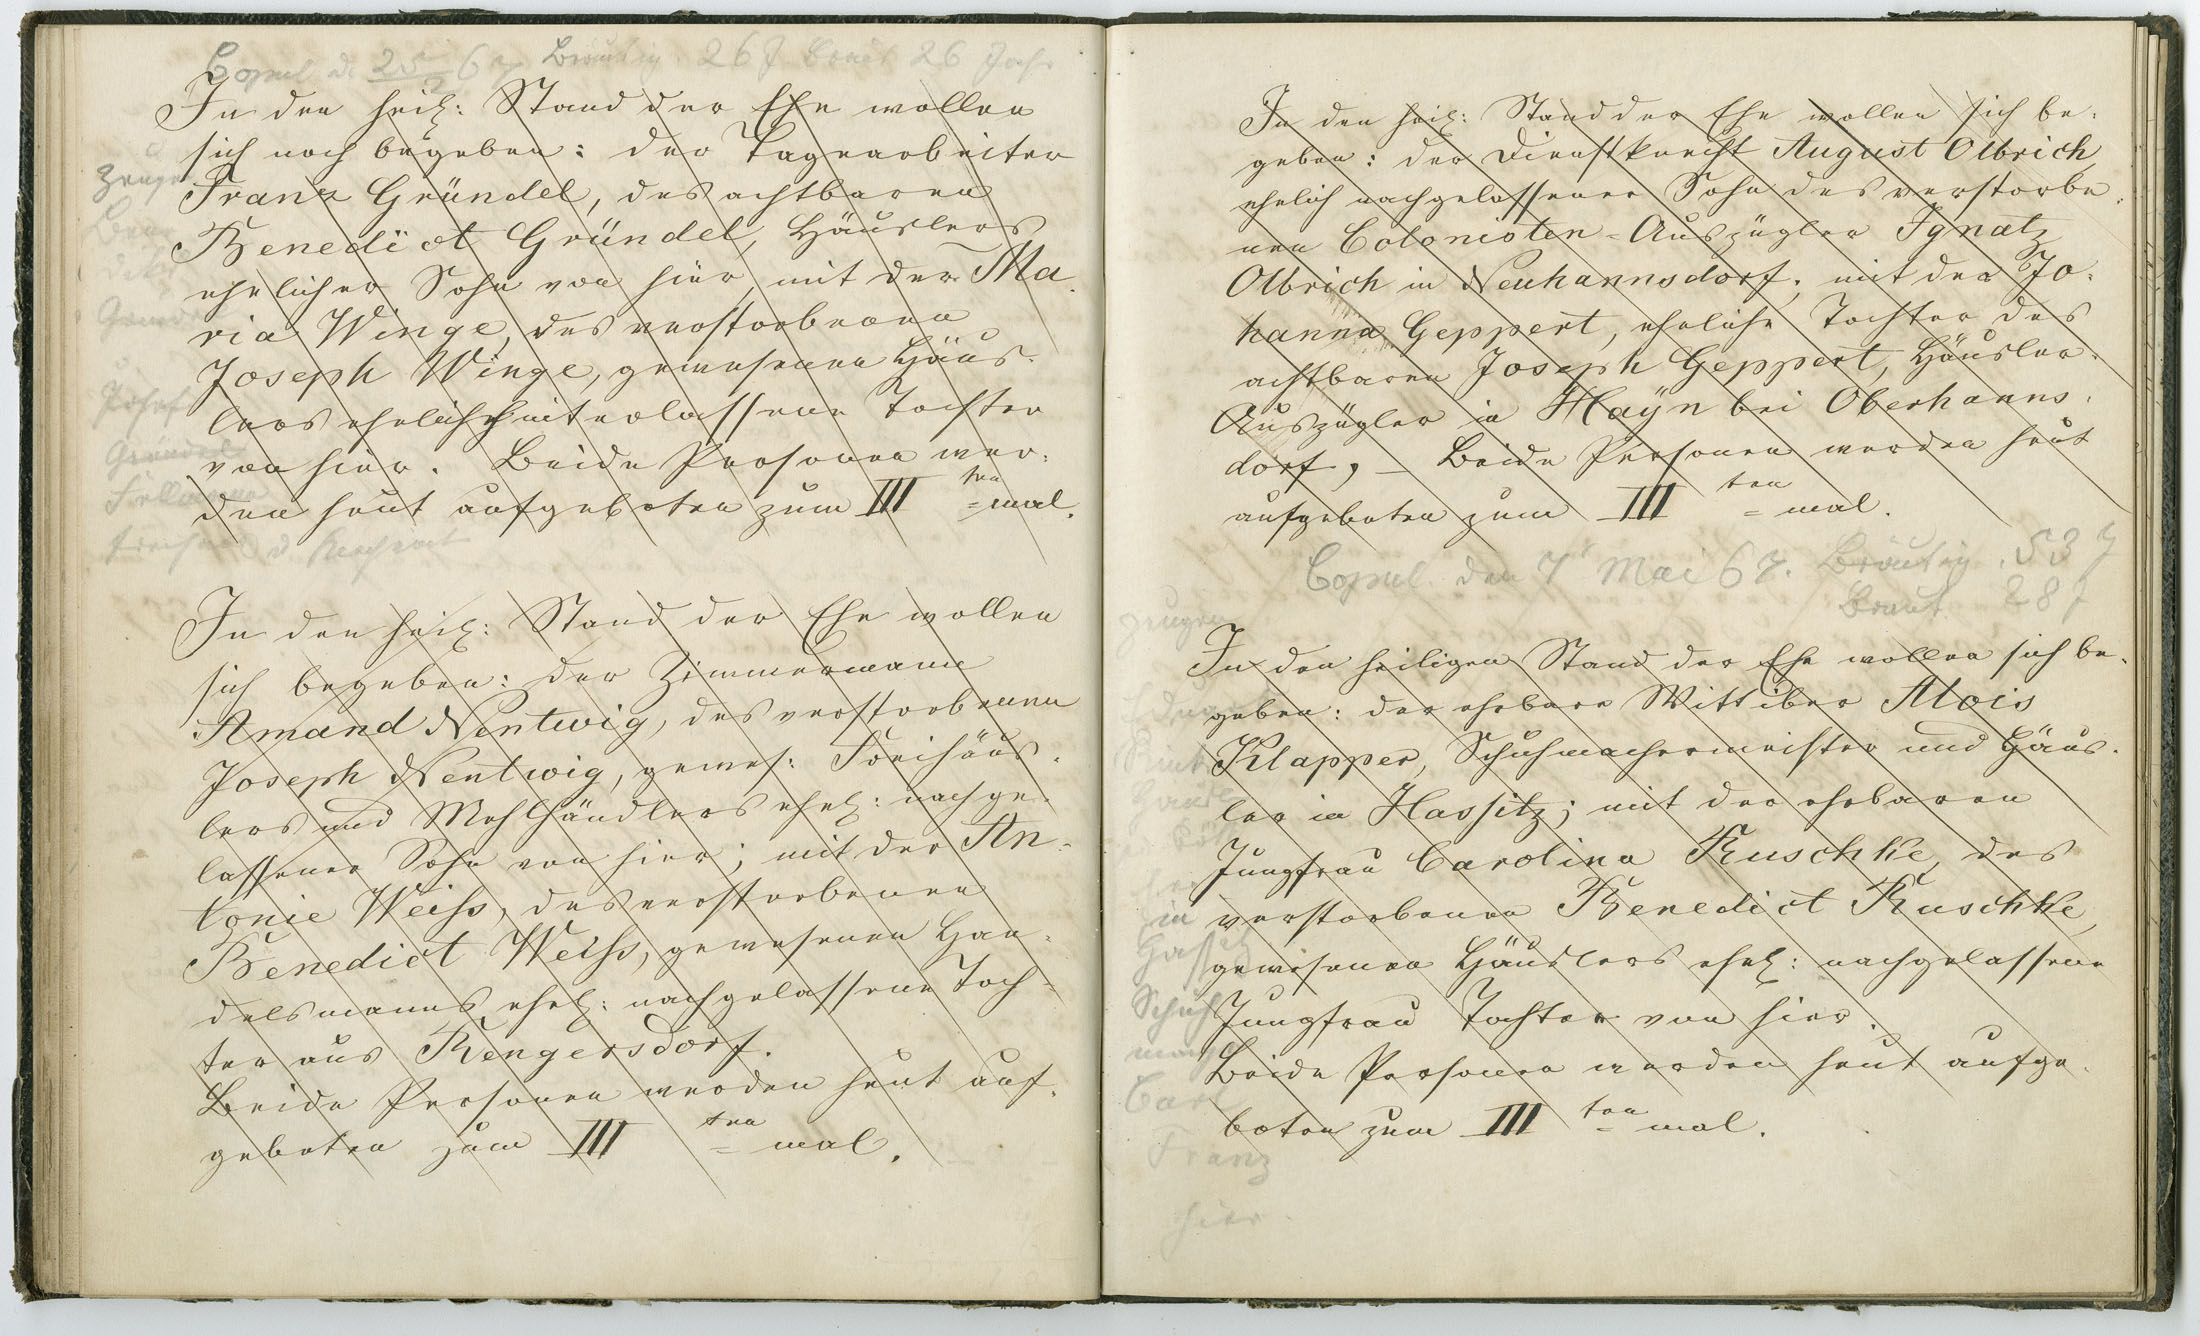 Copul. d. 25/2 67 Bräutig. 26 J Braut 26 Jahr
In den heil: Stand der Ehe wollen
sich noch begeben: der Tagearbeiter
Franz Gründel, des achtbaren
Benedict Gründel, Häuslers
ehelicher Sohn von hier, mit der Ma-
ria Winge, des verstorbenen
Joseph Winge, gewesenen Häus-
lers ehelich hinterlassene Tochter
von hier. Beide Personen wer-
den heut aufgeboten zum III ten = mal.
Zeuge
Bene
dikt
Gründel
Joseph
Gründel
In den heil: Stand der Ehe wollen
sich begeben: der Zimmermann
Amand Nentwig, des verstorbenen
Joseph Nentwig, gewes: Freihäus-
lers und Mehlhändlers ehel: nachge-
lassener Sohn von hier; mit der An-
tonie Weiss, des verstorbenen
Benedict Weiss, gewesenen Han-
delsmanns ehel: nachgelassene Toch-
ter aus Rengersdorf.
Beide Personen werden heut auf-
geboten zum III ten = mal.
In den heil: Stand der Ehe wollen sich be-
geben: der Dienstknecht August Olbrich
ehelich nachgelassener Sohn des verstorbe-
nen Colonisten-Auszügler Ignatz
Olbrich in Neuhannsdorf; mit der Jo-
hanna Geppert, eheliche Tochter des
achtbaren Joseph Geppert, Häusler-
Auszügler in Hayn bei Oberhanns-
dorf, – Beide Personen werden heut
aufgeboten zum III ten = mal.
Copul. den 7' Mai 67. Bräutig. 53 J
Braut 28 J
Zeugen
In den heiligen Stand der Ehe wollen sich be-
geben: der ehrbare Wittiber Alois
Klapper, Schuhmachermeister und Häus-
ler in Hassitz; mit der ehrbaren
Jungfrau Carolina Ruschke, des
verstorbenen Benedict Ruschke,
gewesenen Häuslers ehel: nachgelassene
Jungfrau Tochter von hier.
Beide Personen werden heut aufge-
boten zum III ten = mal.
in
Schuh
Carl
Franz
hier.